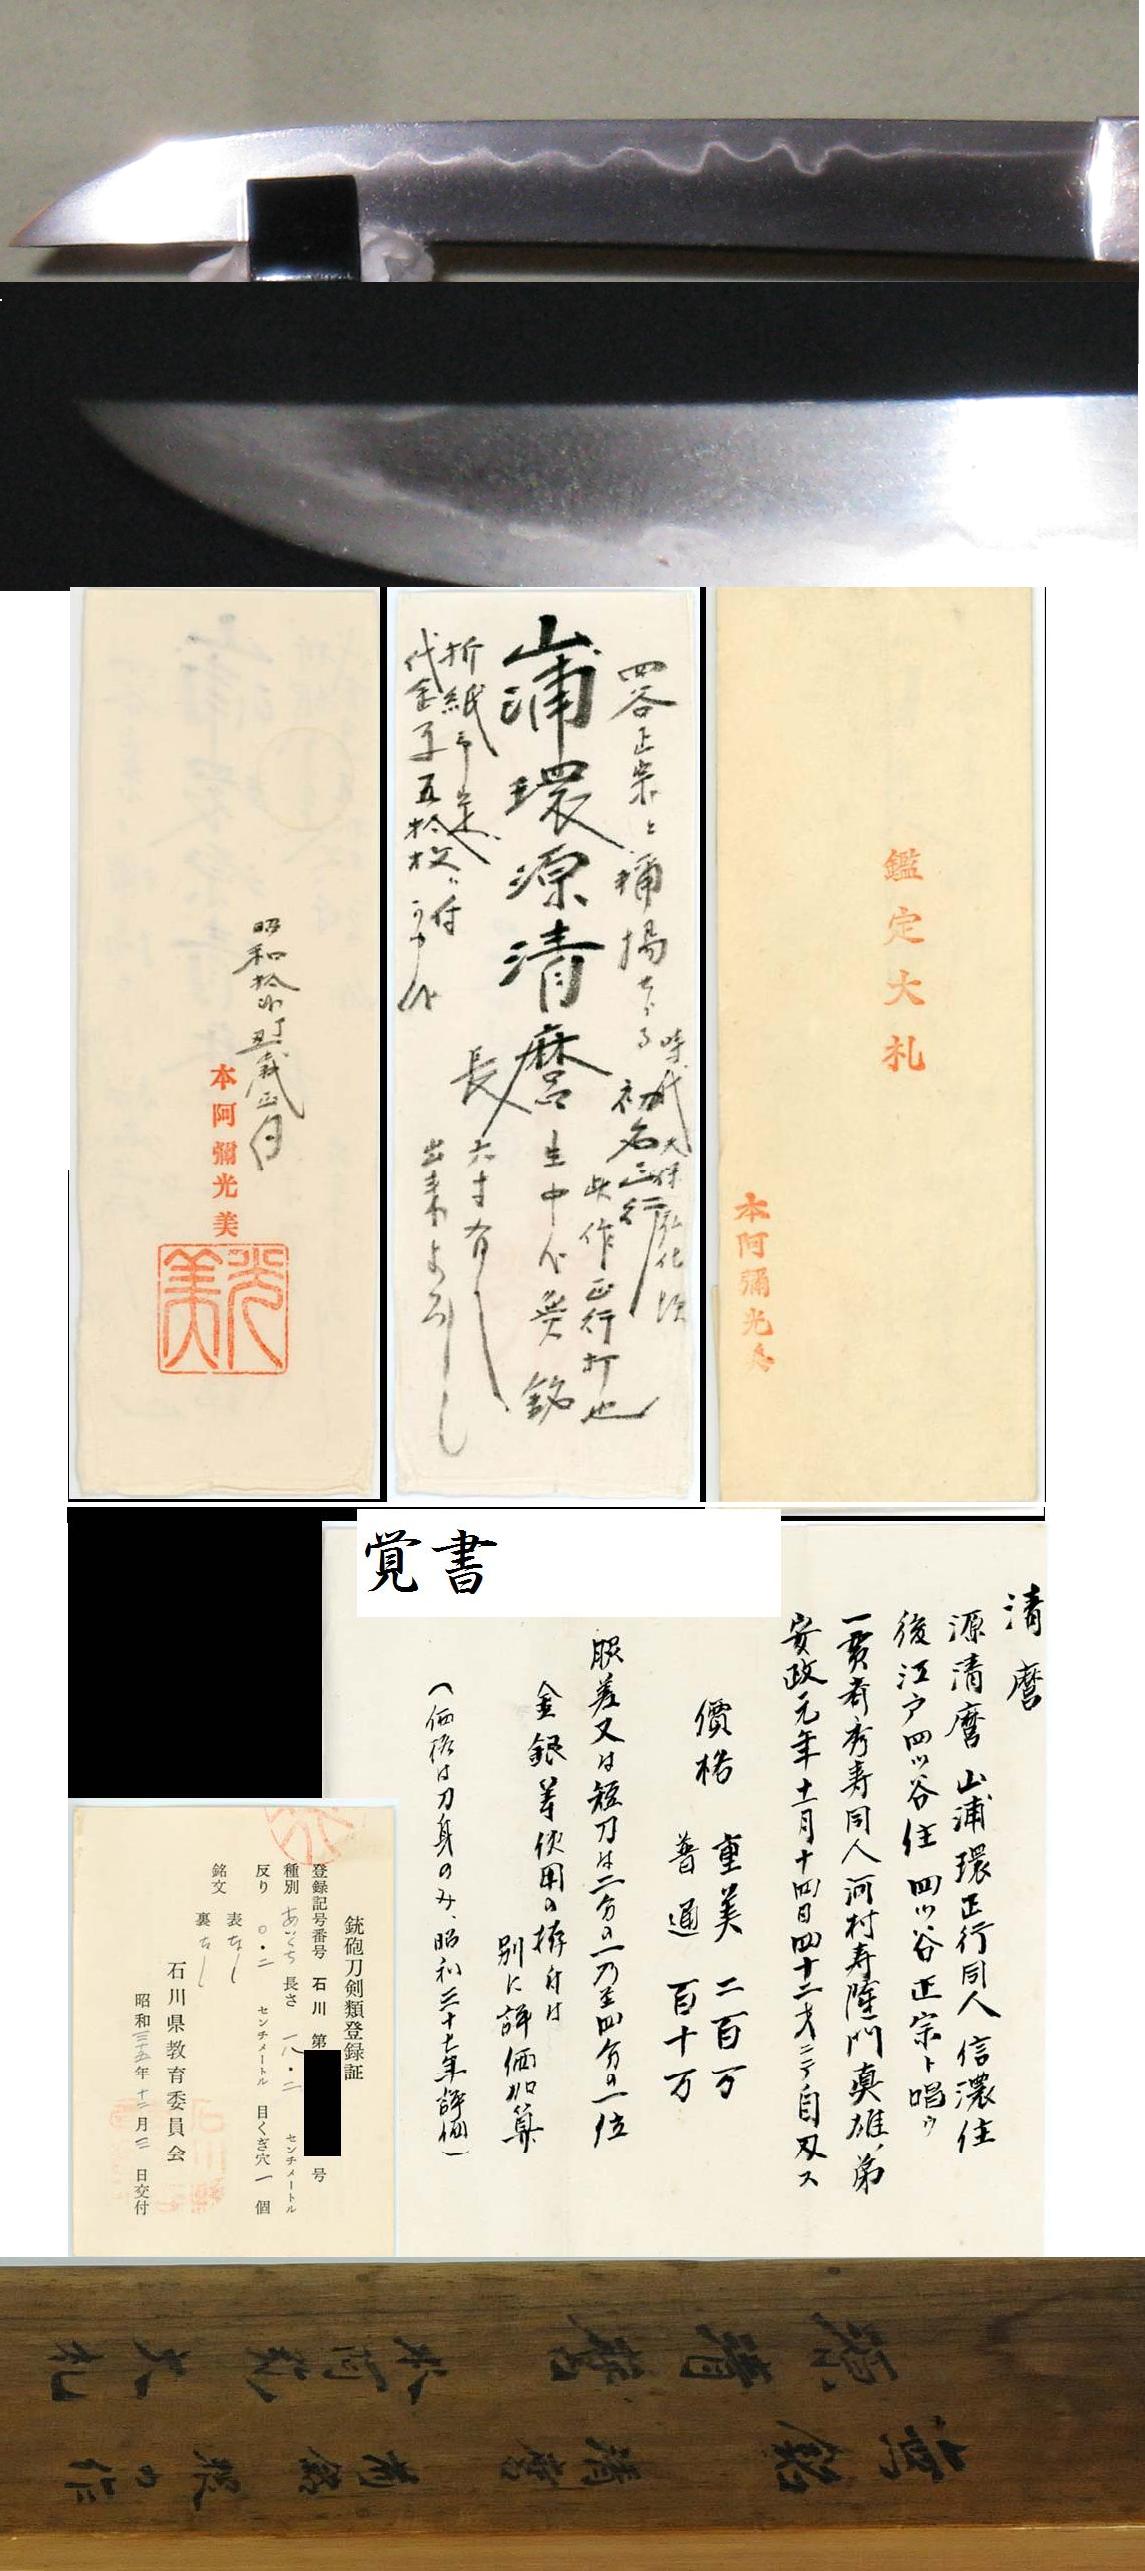 鑑定大札
本阿彌光美
四谷正宗と称揚せらる
時代天保弘化頃
初名正行
此作正行打也
山浦環源清麿
生中心無銘
長六寸有
出来よろし
折紙
代金子五拾枚
昭和拾弐丁丑歳正月
本阿彌光美
光美
覚書
清麿
源清麿 山浦環正行同人 信濃住
後江戸四ッ谷住 四ッ谷正宗ト唱ウ
一貫斎秀寿同人 河村寿隆門 真雄弟
安政元年十一月十四日四十二才ニテ自刃ス
價格 重美 二百万
普通 百十万
脇差又は短刀は二分の一乃至四分の一位
金銀等使用の拵付は
別に評価加算
(価格は刀身のみ、昭和三十七年評価)
銃砲刀剣類登録証
登録記号番号 石川 第 号
種別 あいくち 長さ 一八・二 センチメートル
反り 〇・二 センチメートル 目くぎ穴 一 個
銘文 表 なし
裏 なし
石川県教育委員会
昭和三十五年十二月三日交付
源清麿 本阿弥大札
無銘 清麿 有銘 作